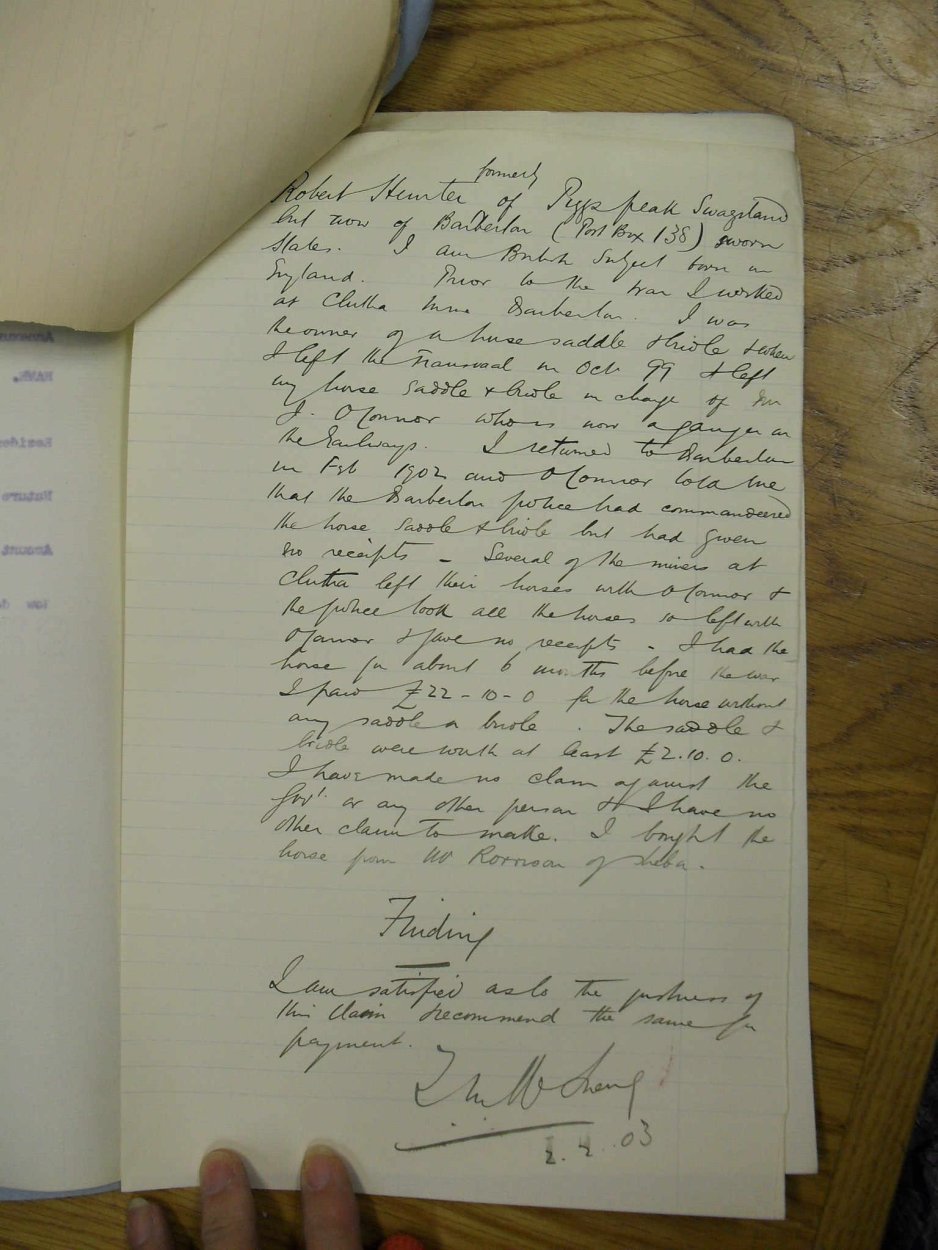 formerly
Robert Hunter of Piggs peak Swazieland
but now of Barberton (Post Box 138) sworn
states. I am British Subject born in
England. Prior to the war I worked
at Clutha mine Barberton. I was
the owner of a horse saddle & bridle & when
I left the Transvaal in Oct 99 I left
my horse saddle & bridle in charge of
J. O'Connor who is now a ganger on
the Railways. I returned to Barberton
in Feb 1902 and O'Connor told me
that the Barberton police had commandeered
the horse saddle & bridle but had given
no receipts - Several of the miners at
Clutha left their horses with O'Connor &
the police took all the horses so left with
O'Connor & gave no receipts - I had the
horse for about 6 months before the war
I paid £22-10-0 for the horse without
any saddle or bridle. The saddle &
bridle were worth at least £2.10.0.
I have made no claim against the
Govt. or any other person & I have no
other claim to make. I bought the
horse from W Rorrison of Sheba.
Finding
I am satisfied as to the justness of
this claim & recommend the same for
payment.
2.2.03
Annexure
NAME.
Residen
Nature
Amount